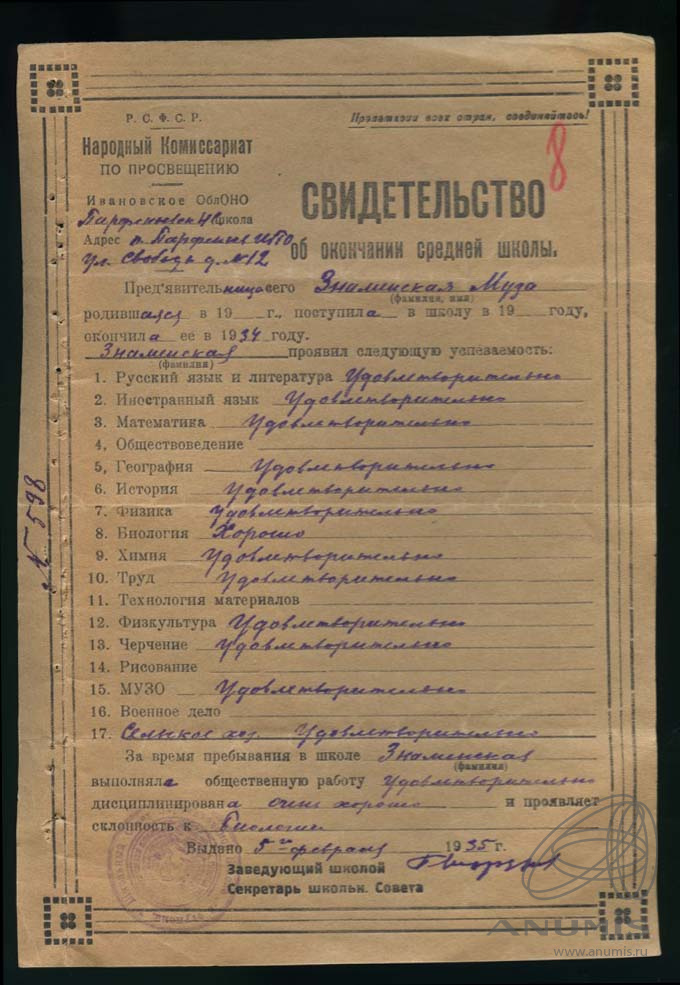 Р. С. Ф. С. Р.
Народный Комиссариат
ПО ПРОСВЕЩЕНИЮ
Ивановское ОблОНО
школа
Адрес
ул. Свободы д. № 12
Пролетарии всех стран, соединяйтесь!
8
СВИДЕТЕЛЬСТВО
об окончании средней школы.
Пред'явительница сего Знаменская Муза
(фамилия, имя)
родившаяся в 19 г., поступила в школу в 19 году,
окончила ее в 1934 году.
Знаменская проявил следующую успеваемость:
(фамилия)
1. Русский язык и литература Удовлетворительно
2. Иностранный язык Удовлетворительно
3. Математика Удовлетворительно
4, Обществоведение
5, География Удовлетворительно
6. История Удовлетворительно
7. Физика Удовлетворительно
8. Биология Хорошо
9. Химия Удовлетворительно
10. Труд Удовлетворительно
11. Технология материалов
12. Физкультура Удовлетворительно
13. Черчение Удовлетворительно
14. Рисование
15. МУЗО Удовлетворительно
16. Военное дело
17. Сельское хоз. Удовлетворительно
За время пребывания в школе Знаменская
(фамилия)
выполняла общественную работу Удовлетворительно
дисциплинирована очень хорошо и проявляет
склонность к Биологии
Выдано 5го февраля 1935 г.
Заведующий школой
Секретарь школьн. Совета
№ 598
ANUMIS
www.anumis.ru